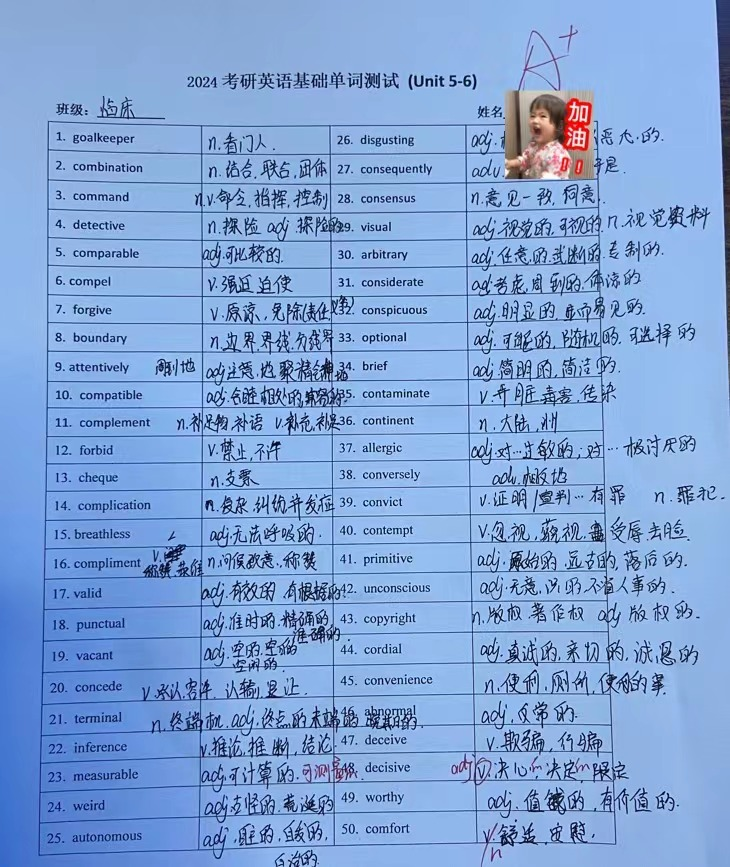 A+
2024 考研英语基础单词测试 (Unit 5-6)
班级: 临床 姓名
加油
1. goalkeeper n.看门人. 26. disgusting adj. 恶心的.
2. combination n.结合,联合,团体 27. consequently adv. 于是.
3. command n.v.命令,指挥,控制 28. consensus n.意见一致,同意.
4. detective n.探险 adj 探险的 29. visual adj.视觉的,可视的 n.视觉资料
5. comparable adj.可比较的. 30. arbitrary adj.任意的.武断的.专制的.
6. compel v.强迫,迫使 31. considerate adj考虑周到的.体凉的
7. forgive v.原谅,免除(责任义务) 32. conspicuous adj.明显的,显而易见的.
8. boundary n.边界.界线,分线界 33. optional adj.可能的,随机的,可选择的
9. attentively 周到地 adj注意地,聚精会神地 34. brief adj.简明的,简洁的.
10. compatible adj.合睦相处的, 35. contaminate v.弄脏毒害,传染
11. complement n.补足物,补语 v.补充,补足 36. continent n.大陆,州
12. forbid v.禁止,不许 37. allergic adj.对…过敏的;对…极讨厌的
13. cheque n.支票 38. conversely adv.相反地
14. complication n.复杂,纠纷,并发症 39. convict v.证明/宣判…有罪 n.罪犯.
15. breathless adj.无法呼吸的. 40. contempt v.忽视.藐视. 受辱丢脸.
16. compliment v. 称赞. n.问候致意,称赞 41. primitive adj.原始的.远古的,落后的.
17. valid adj.有效的.有根据的 42. unconscious adj.无意识的.不省人事的.
18. punctual adj.准时的.精确的 准确的. 43. copyright n.版权.著作权 adj 版权的.
19. vacant adj.空的.空闲的 44. cordial adj.真诚的,亲切的,诚恳的
20. concede v.承认.容许,认输,是让. 45. convenience n.便利,厕所,便利的事
21. terminal n.终端机,adj.终点的末端的,晚期的. 46. abnormal adj,反常的.
22. inference v.推论,推断,结论 47. deceive v.欺骗,行骗
23. measurable adj.可计算的.可测量的. 48. decisive adj v.决心的决定的限定
24. weird adj.古怪的.荒诞的 49. worthy adj.值钱的,有价值的.
25. autonomous adj.自主的.自发的, 自治的 50. comfort v/n.舒适,安慰.